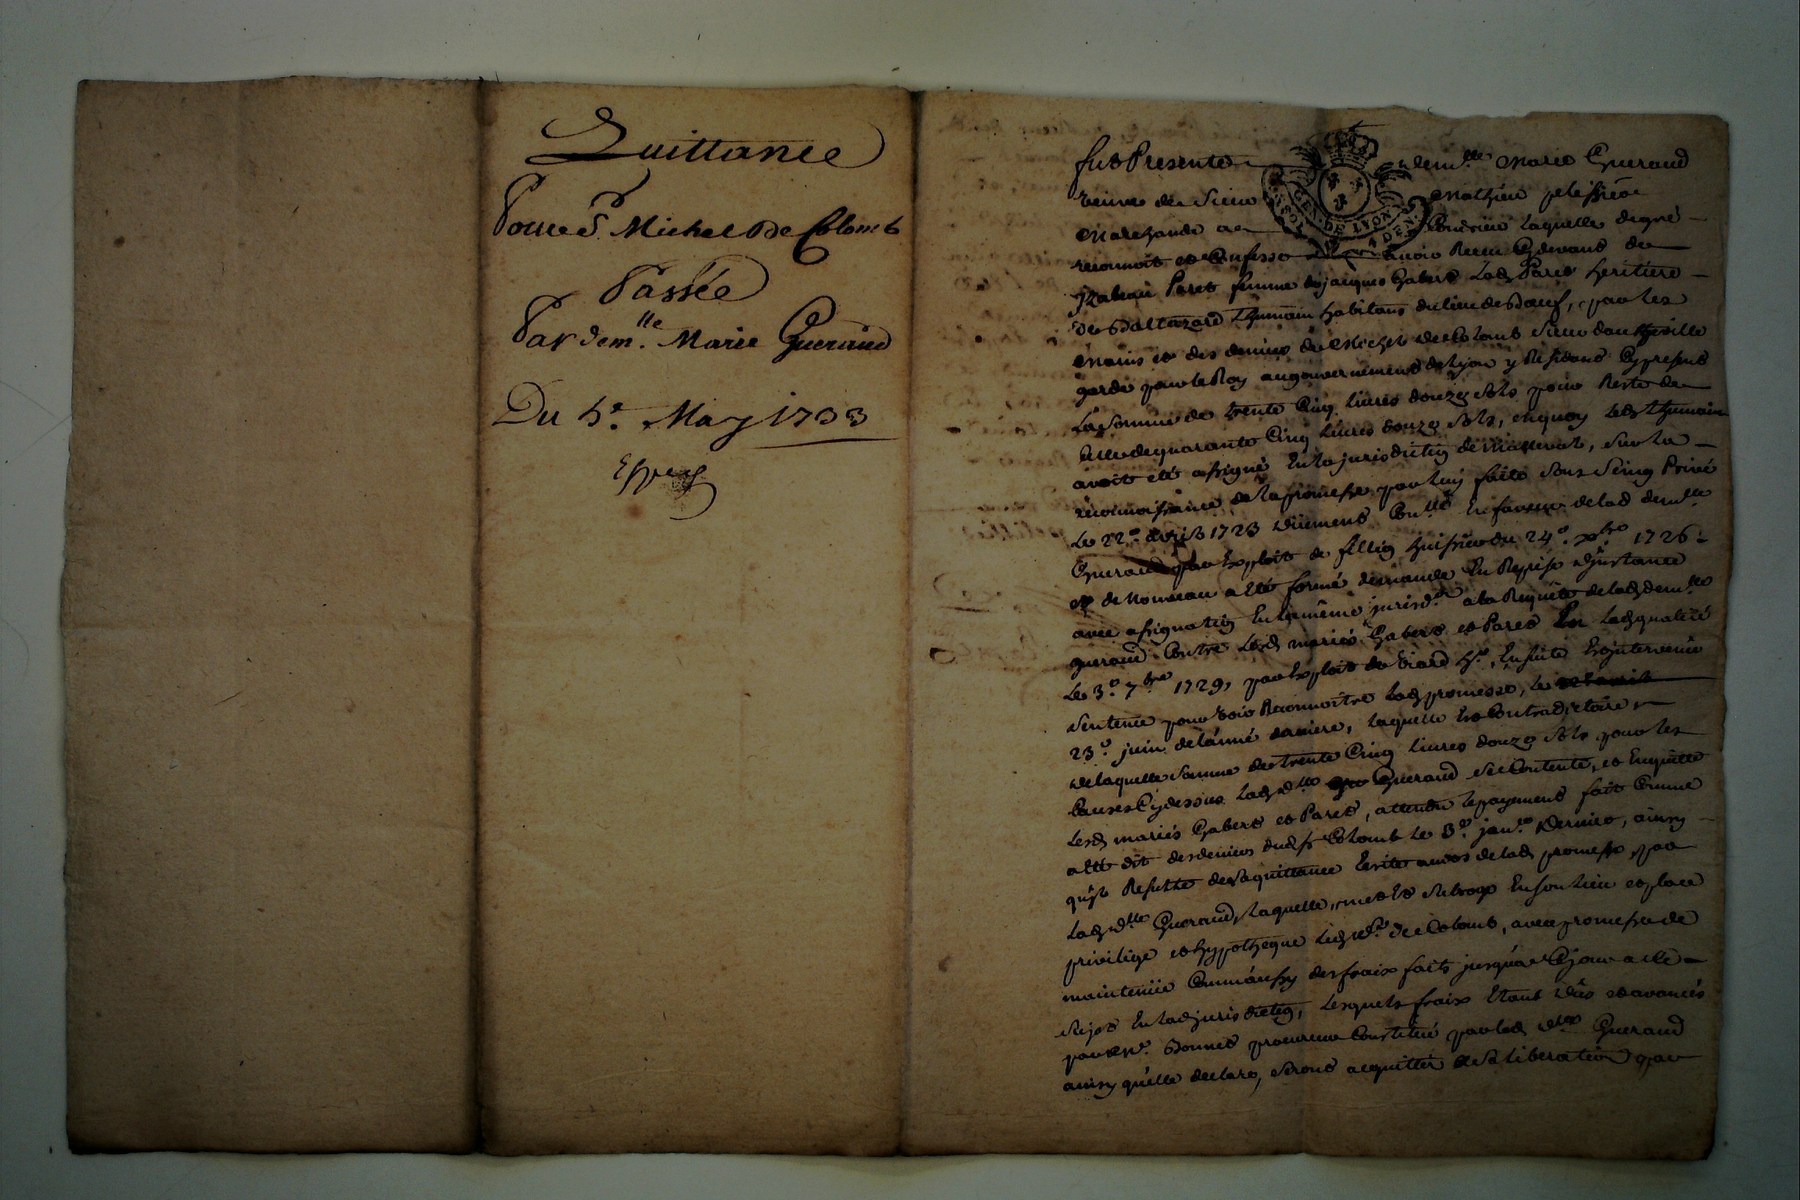 Quittance
Pour S.r Michel De Colomb
Passée
Par dem.lle Marie Gueraud
Du 5.e May 1733
Exp.
fut Presente demlle Marie Gueraud
veuve de Sieur Mathieu
Marchande a laquelle degré
reconnoit et Confesse avoir Receu Cydevant de
Izabeau Paret femme de jacques Gabert Lad Paret heritiere
de Baltazard Thumain habitans du lieu de Bœuf, par les
mains et des deniers de Michel de Colomb Sieur
garde pour le Roy au gouvernement de Lyon y Residant Cy present
La Somme de trente Cinq livres douze sols pour Reste de
celle de quarante Cinq livres douze sols, enquoy led Thumain
avoit eté assigné En la jurisdiction de Malleval, sur la
reconnoissance de la promesse par luy faite sous Seing Privé
Le 22.e avril 1723 En faveur de lad demlle
Gueraud par Exploit de huissier du 24.e xbre 1726
et de Nouveau a eté formé demande En Reprise d'instance
avec assignation En la même jurisd.on a la Requête de lad demlle
gueraud Contre Lesd mariés Gabert et Paret En Lad qualité
Le 3.e 7bre 1729, par Exploit de Viard h.er, Ensuite Est intervenüe
Sentence pour voir Reconnoitre Lad promesse, le
23.e juin de lannée derniere, laquelle Est Contradictoire
de laquelle Somme de trente Cinq livres douze sols pour les
Causes Cy dessus Lad dlle Gueraud se Contente, et En quitte
Lesd mariés Gabert et Paret, attendu le payement fait Comme
a eté dit des deniers dud sr Colomb Le 3.e janer Dernier, ainsy
qu'il Resulte de la quittance Ecrite au dos de lad promesse par
Lad dlle Gueraud, laquelle met Et Subroge En son lieu et place
privilege et hypotheque Led sr de Colomb, avec promesse de
maintenüe Comm'aussy des fraix faits jusqu'a Ce jour a ce
Sujet En lad jurisdiction, Lesquels fraix Etant dûs et avancés
par Me Bonnet procureur Constitué par lad dlle Gueraud
ainsy qu'elle declare, seront acquittés a sa liberation par